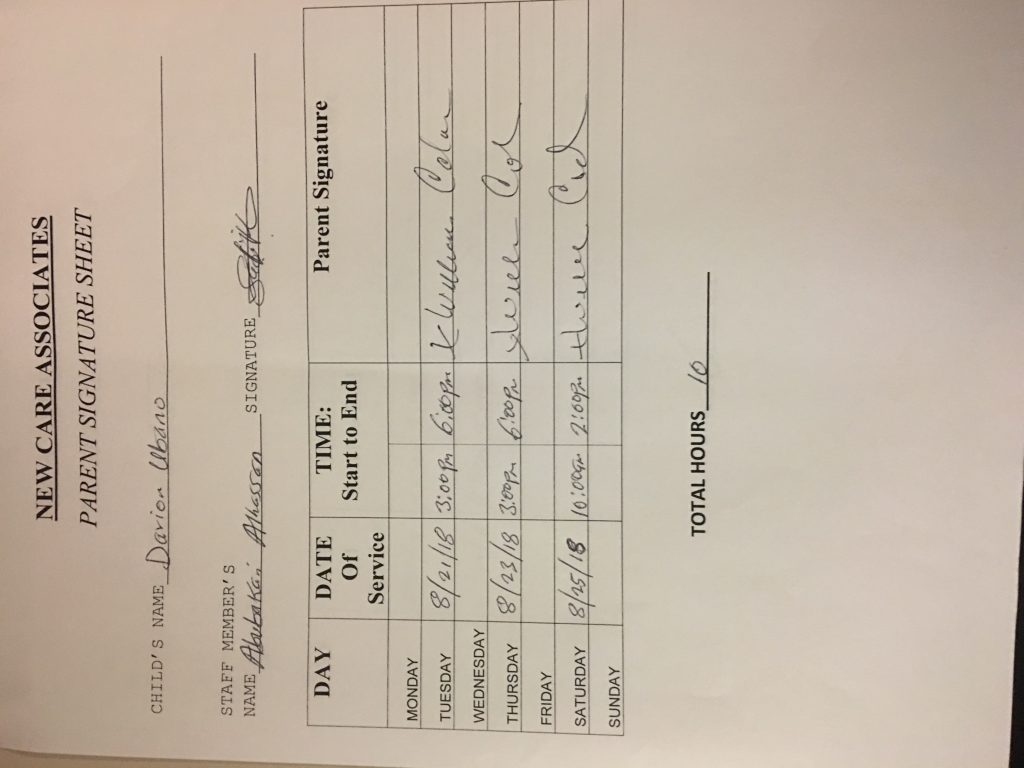 NEW CARE ASSOCIATES
PARENT SIGNATURE SHEET
CHILD'S NAME Davion Ubano
STAFF MEMBER'S
NAME Abubakai Alhassan SIGNATURE
DAY DATE Of Service TIME: Start to End Parent Signature
MONDAY
TUESDAY 8/21/18 3:00pm 6:00pm
WEDNESDAY
THURSDAY 8/23/18 3:00pm 6:00pm
FRIDAY
SATURDAY 8/25/18 10:00am 2:00pm
SUNDAY
TOTAL HOURS 10